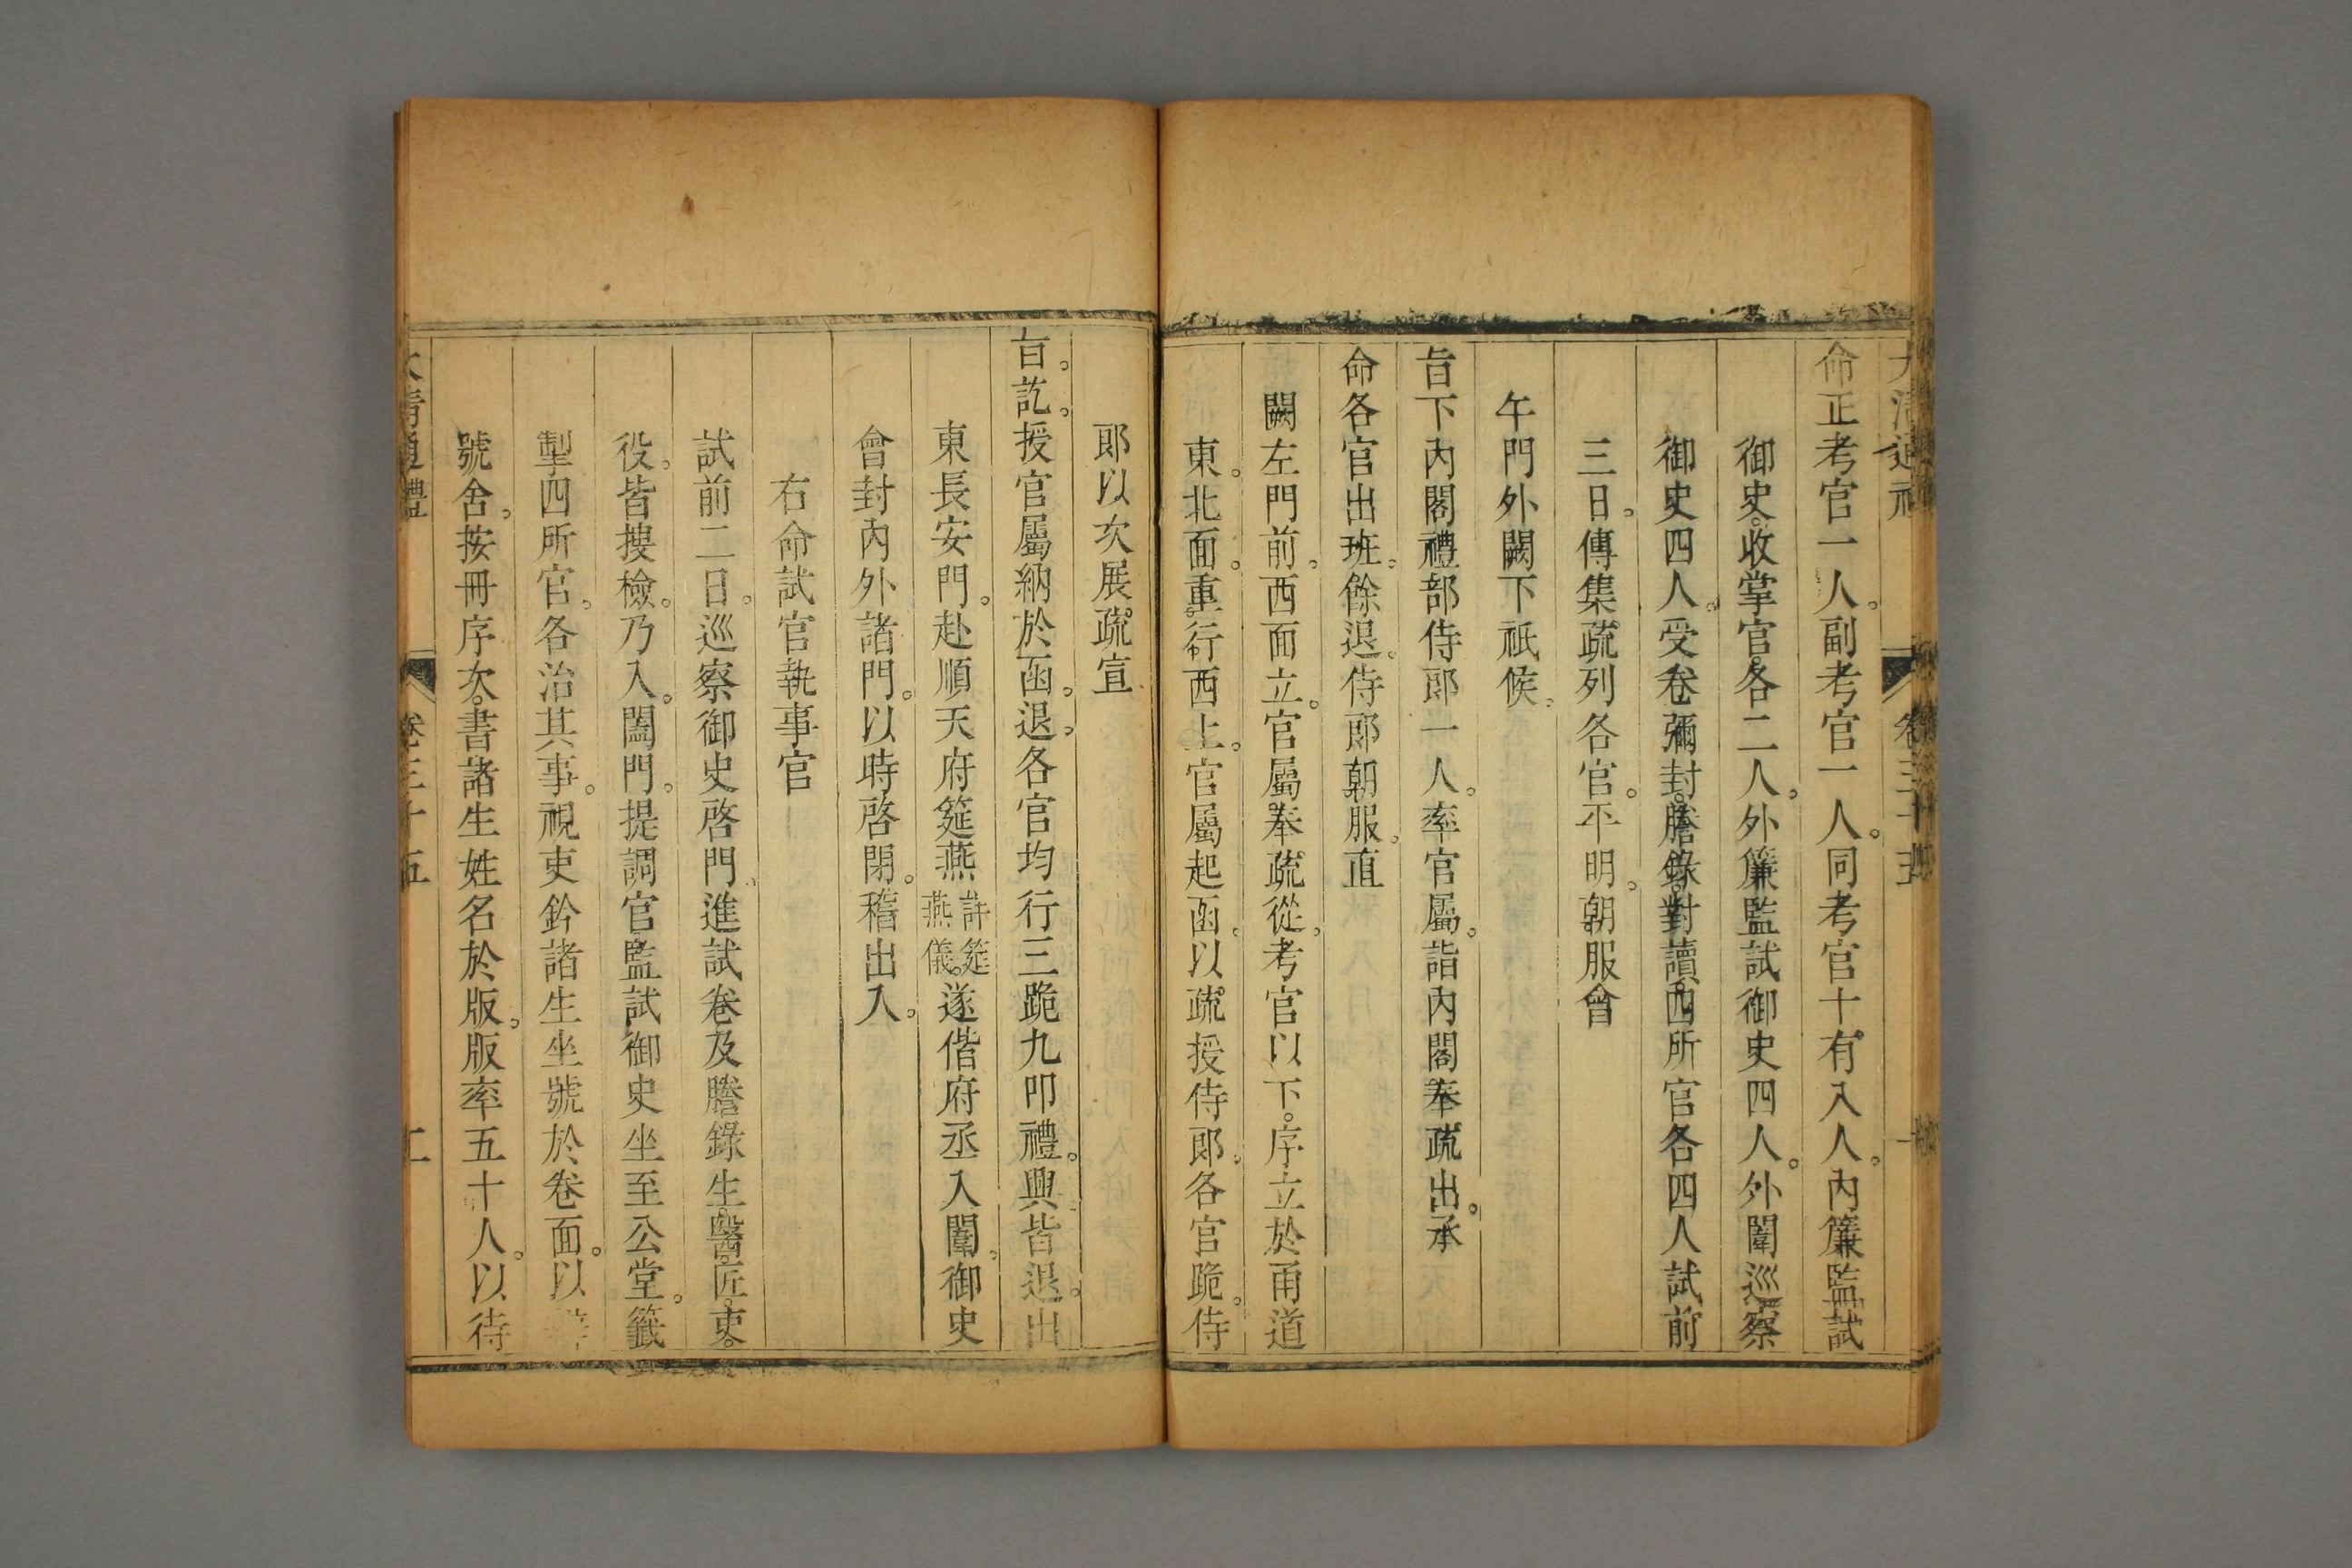 大清通禮 卷三十五
命正考官一人。副考官一人。同考官十有八人。內簾監試
御史。收掌官。各二人。外簾監試御史四人。外闈巡察
御史四人。受卷彌封。謄錄。對讀。四所官各四人試前
三日。傳集疏列各官。平明。朝服會
午門外闕下祇候。
旨下內閣禮部侍郎一人。率官屬。詣內閣奉疏出。承
命各官出班。餘退。侍郎朝服。直
闕左門前。西面立。官屬奉疏從。考官以下。序立於甬道
東。北面。重行西上。官屬起函。以疏授侍郎。各官跪。侍
郎以次展疏宣
旨。訖。授官屬納於函。退。各官均行三跪九叩禮。興。皆退。出
東長安門。赴順天府筵燕詳筵燕儀。遂偕府丞入闈。御史
會封內外諸門。以時啓閉。稽出入。
右命試官執事官
試前二日。巡察御史啓門。進試卷及謄錄生。醫。匠。吏。
役。皆搜檢。乃入。闔門。提調官監試御史坐至公堂。籤
掣四所官。各治其事。視吏鈐諸生坐號於卷面。以
號舍。按冊序次。書諸生姓名於版。版率五十人。以待
大清通禮 卷三十五 二